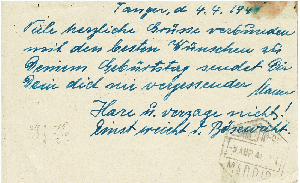 Tanger, d 4.4.194
Viele herzliche Grüsse verbunden
mit den besten Wünschen zu
Deinem Geburtstag sendet Dir
Dein dich nie vergessender
Harre u. verzage nicht!
Einst weicht d. Bösewicht.
MADRID